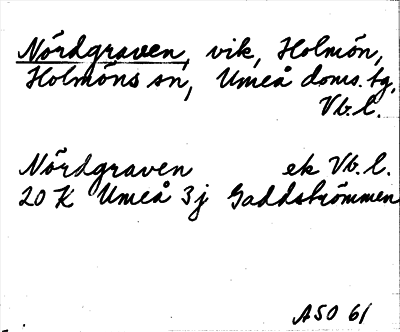 Nördgraven, vik, Holmön,
Holmöns sn, Umeå doms. tg,
Vb. l.
Nördgraven ek Vb. l.
20 K Umeå 3j Gaddströmmen
ASO 61